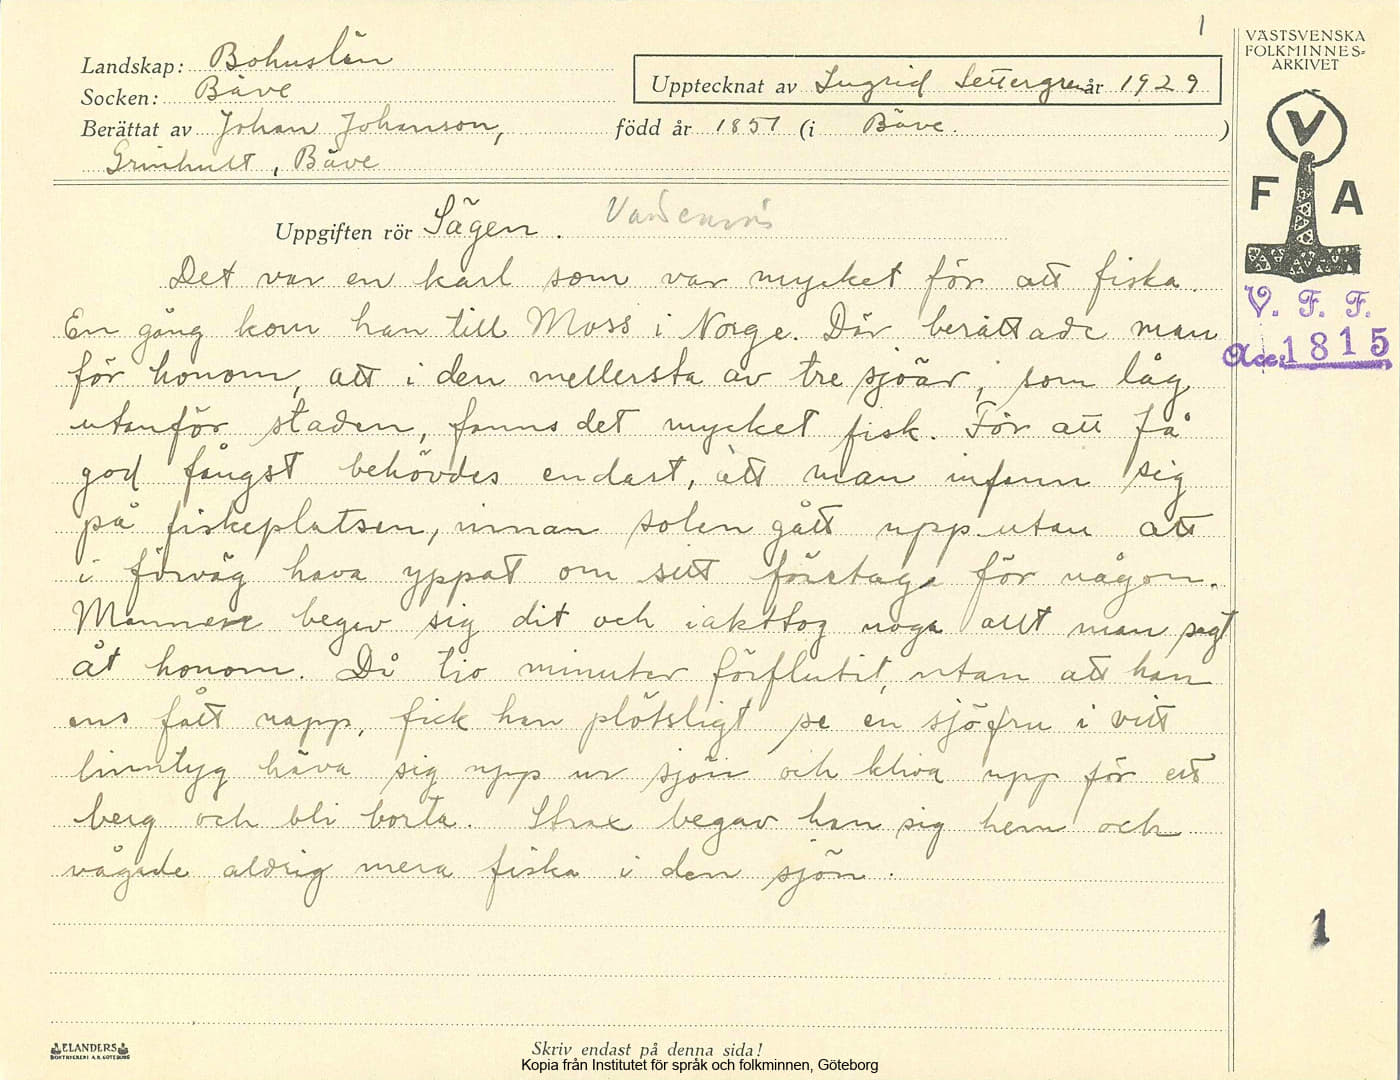 1
VÄSTSVENSKA
FOLKMINNES-
ARKIVET
Landskap: Bohuslän
Socken: Bäve
Upptecknat av Ingrid Settergren år 1929
Berättat av Johan Johanson,
född år 1851 (i Bäve. )
Grinhult, Bäve
V
F A
Uppgiften rör Sägen.
V. F. F.
Acc. 1815
Det var en karl som var mycket för att fiska.
En gång kom han till Moss i Norge. Där berättade man
för honom, att i den mellersta av tre sjöar, som låg
utanför staden, fanns det mycket fisk. För att få
god fångst behövdes endast, att man infann sig
på fiskeplatsen, innan solen gått upp utan att
i förväg hava yppat om sitt företag för någon.
Mannen begav sig dit och iakttog noga allt man sagt
åt honom. Då tio minuter förflutit, utan att han
ens fått napp, fick han plötsligt se en sjöfru i vitt
linntyg häva sig upp ur sjön och kliva upp för ett
berg och bli borta. Strax begav han sig hem och
vågade aldrig mera fiska i den sjön.
1
ELANDERS
BOKTRYCKERI A.B. GÖTEBORG
Skriv endast på denna sida!
Kopia från Institutet för språk och folkminnen, Göteborg